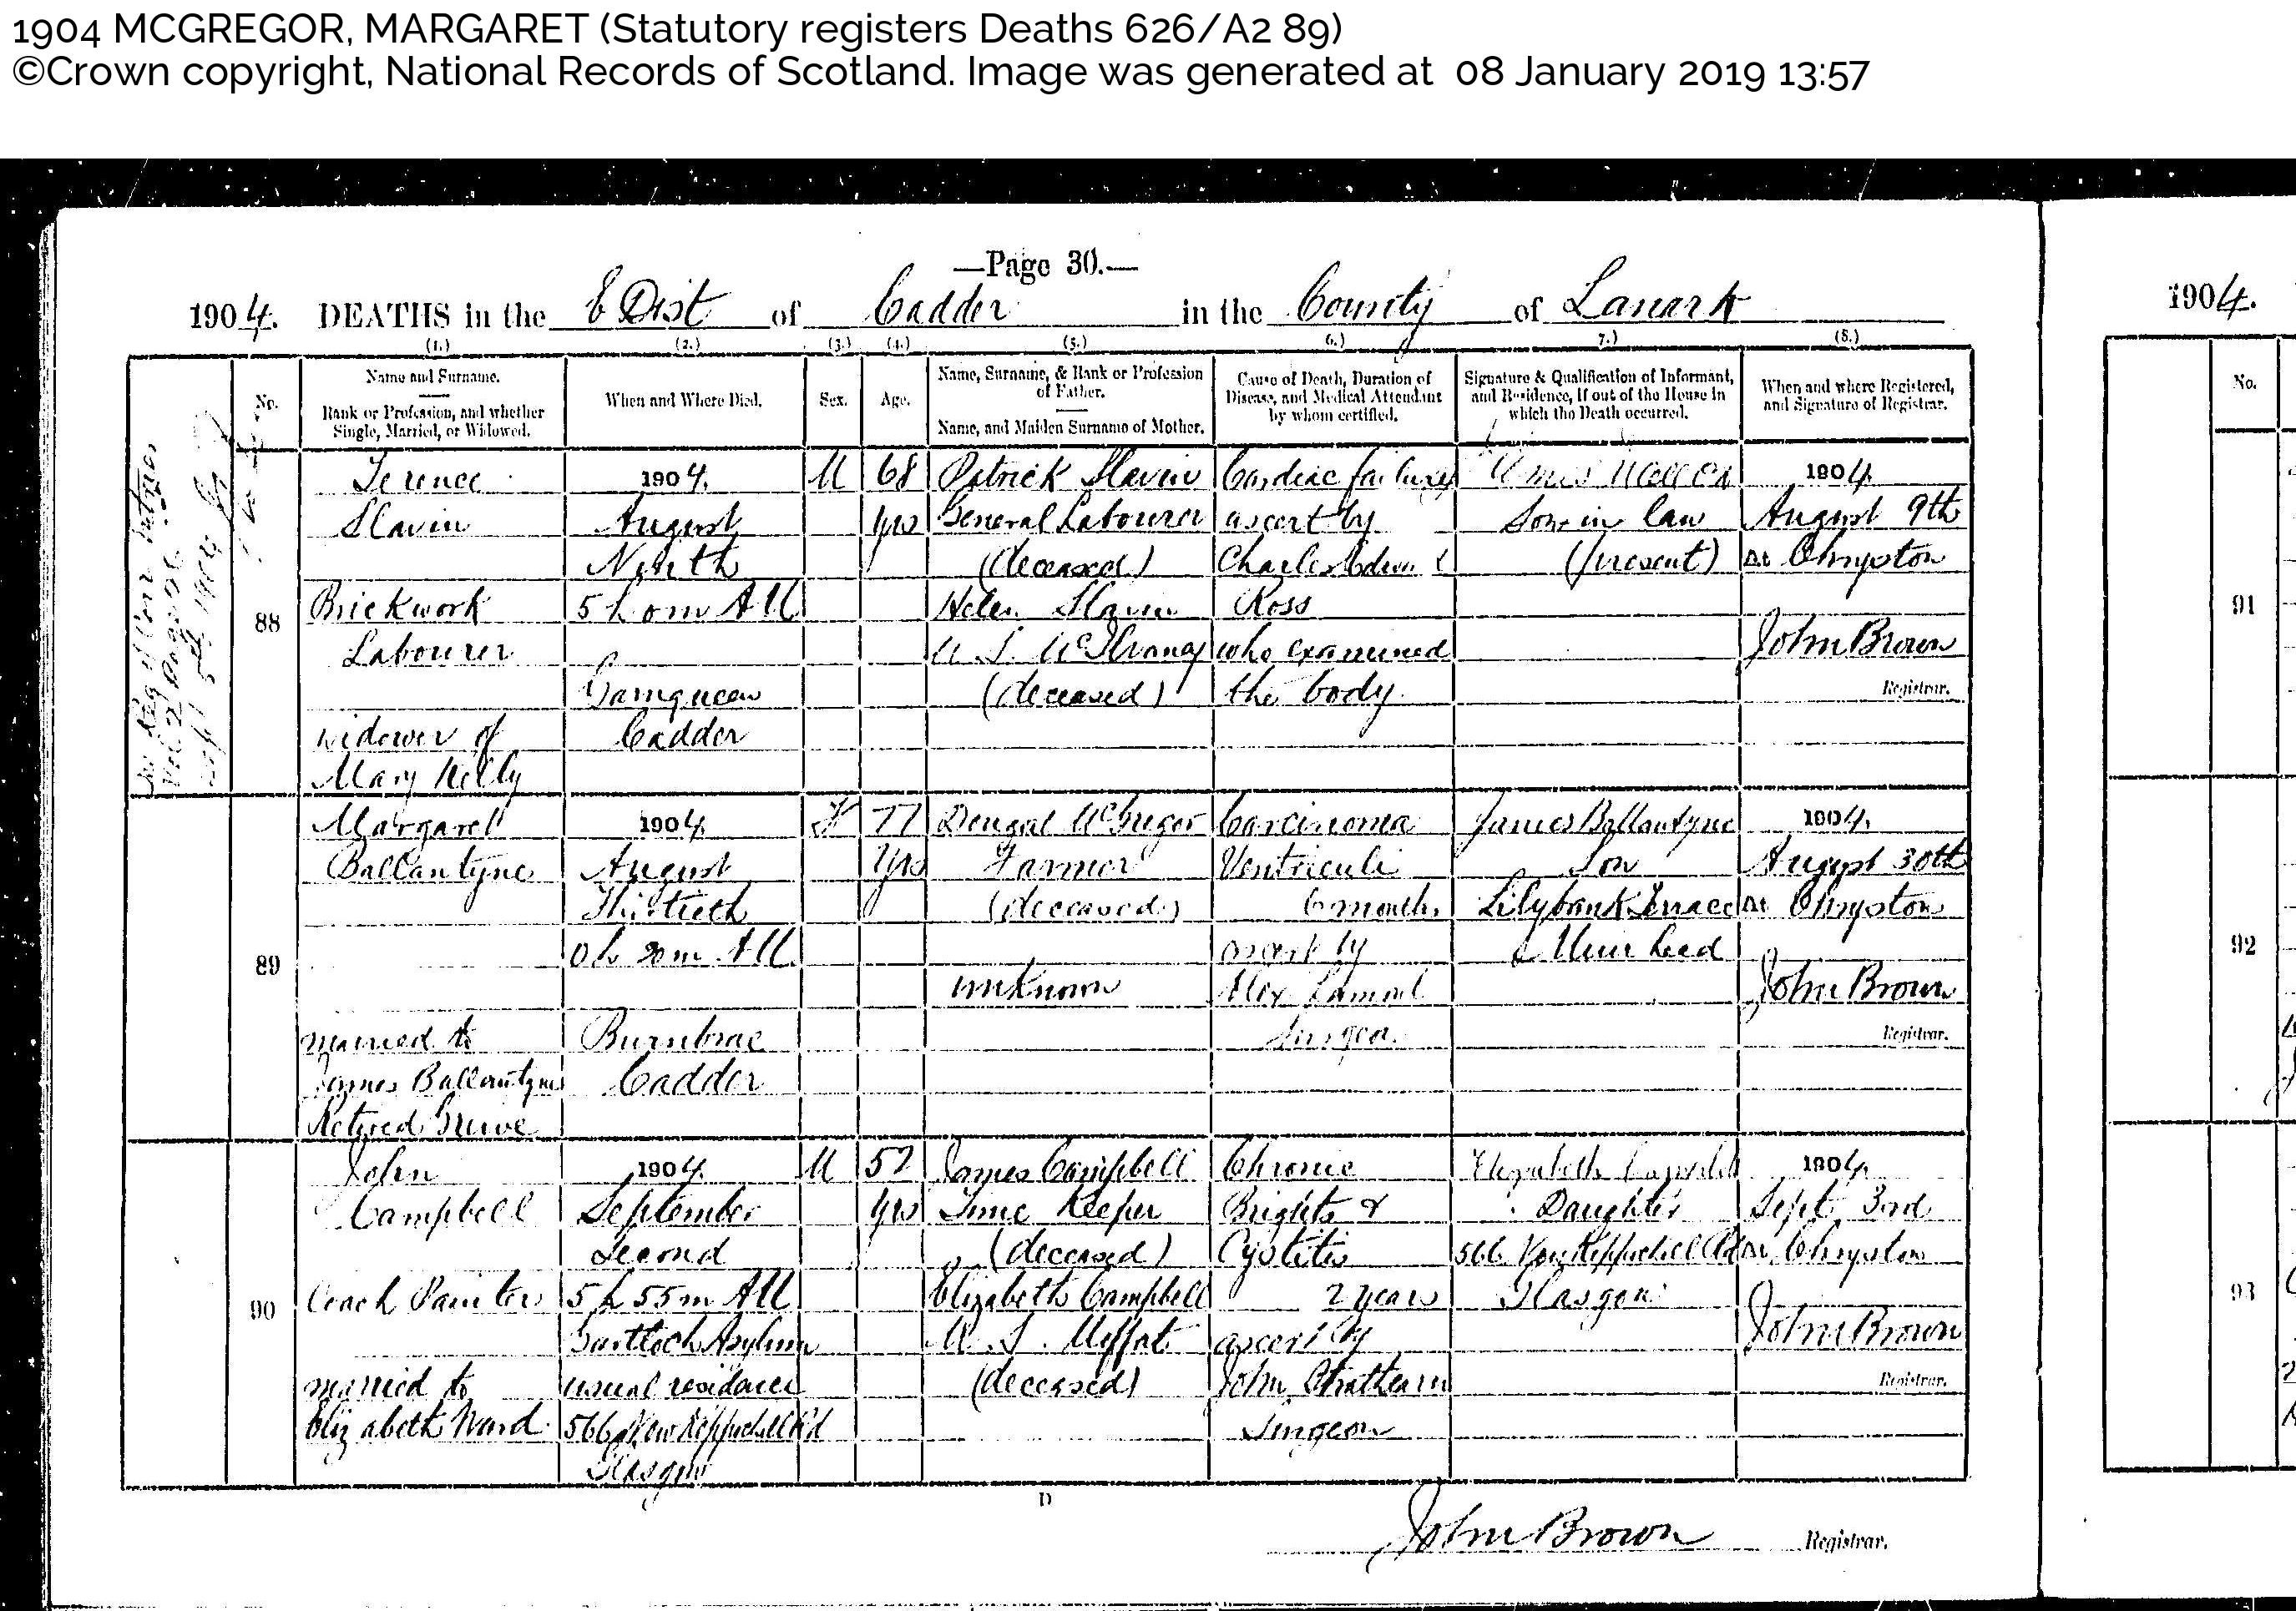 1904 MCGREGOR, MARGARET (Statutory registers Deaths 626/A2 89)
©Crown copyright, National Records of Scotland. Image was generated at 08 January 2019 13:57
—Page 30.—
1904. DEATHS in the E Dist of Cadder in the County of Lanark
1904.
(1.) (2.) (3.) (4.) (5.) 6.) 7.) (8.)
No.
Name and Surname.
Rank or Profession, and whether
Single, Married, or Widowed.
When and Where Died.
Sex.
Age.
Name, Surname, & Rank or Profession
of Father.
Name, and Maiden Surname of Mother.
Cause of Death, Duration of
Disease, and Medical Attendant
by whom certified.
Signature & Qualification of Informant,
and Residence, if out of the House in
which the Death occurred.
When and where Registered,
and Signature of Registrar.
No.
88
Terence
Slavin
Brickwork
Labourer
widower of
Mary Kelly
1904.
August
Ninth
5 h 0 m AM
Garnqueen
Cadder
M
68
yrs
Patrick Slavin
General Labourer
(deceased)
Helen Slavin
M. S.
(deceased)
Cardiac failure
as cert by
Charles
Ross
who examined
the body.
Son in law
(present)
1904.
August 9th
At Chryston
John Brown
Registrar.
91
89
Margaret
Ballantyne
married to
James Ballantyne
Retired Grieve
1904.
August
Thirtieth
0 h 20 m AM
Burnbrae
Cadder
F
77
yrs
Dougal McGregor
Farmer
(deceased)
unknown
Carcinoma
Ventriculi
6 months
as cert by
Alex Lamont
Surgeon
James Ballantyne
Son
Lilybank Terrace
Muirhead
1904.
August 30th
At Chryston
John Brown
Registrar.
92
90
John
Campbell
Coach Painter
married to
Elizabeth Ward
1904.
September
Second
5 h 55 m AM
Gartloch Asylum
usual residence
566 New Keppochhill Rd
Glasgow
M
52
yrs
James Campbell
Time Keeper
(deceased)
Elizabeth Campbell
M. S. Moffat
(deceased)
Chronic
Brights &
Cystitis
2 years
as cert by
John Strathearn
Surgeon
Elizabeth Campbell
Daughter
566 New Keppochhill Rd
Glasgow
1904.
Sept 3rd
At Chryston
John Brown
Registrar.
93
D
John Brown Registrar.